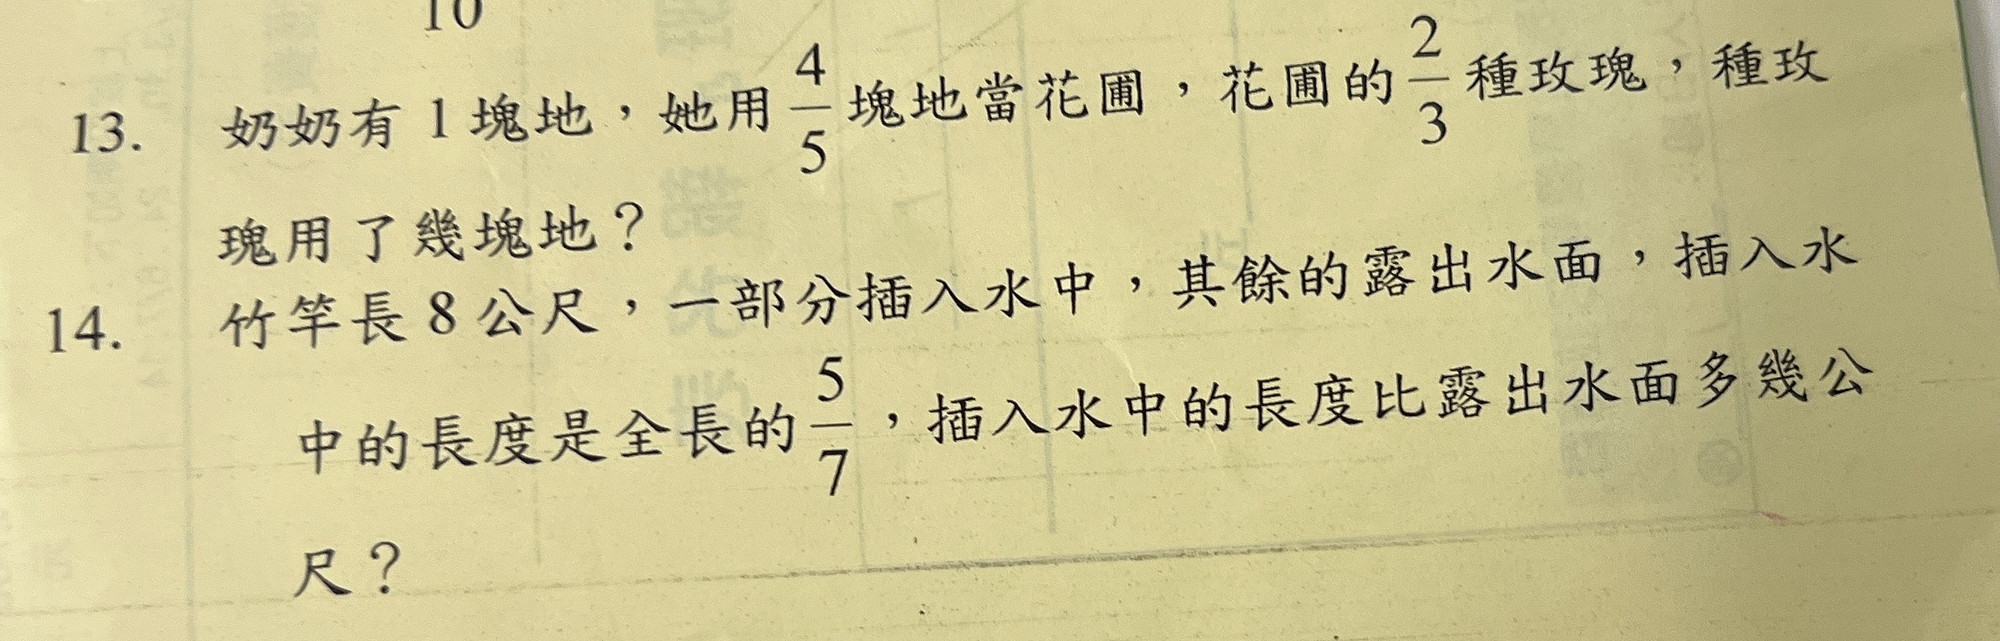 10
13. 奶奶有 1 塊地，她用 4/5 塊地當花圃，花圃的 2/3 種玫瑰，種玫
瑰用了幾塊地？
14. 竹竿長 8 公尺，一部分插入水中，其餘的露出水面，插入水
中的長度是全長的 5/7，插入水中的長度比露出水面多幾公
尺？